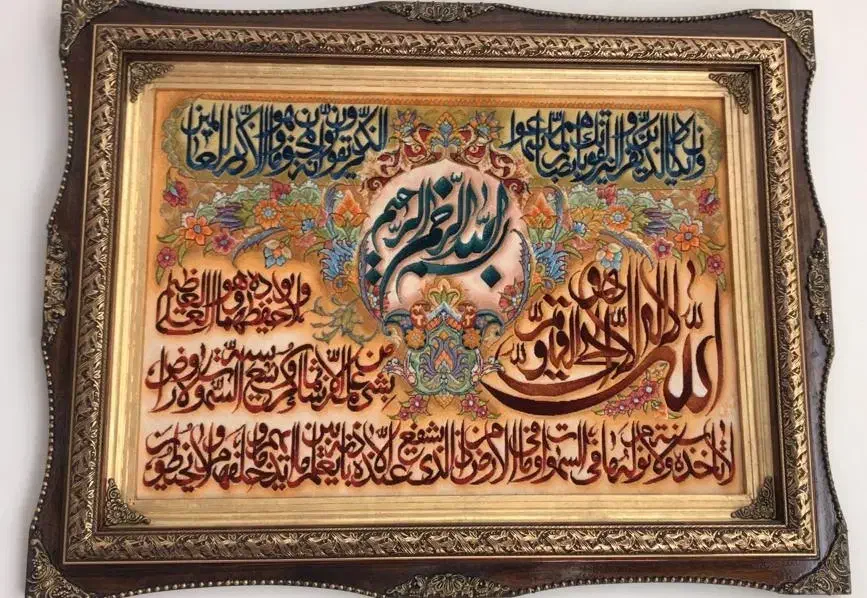 وان یکاد الذین کفروا لیزلقونک بابصارهم لما سمعوا
الذکر ویقولون انه لمجنون وما هو الا ذکر للعالمین
بسم الله الرحمن الرحیم
الله لا اله الا هو الحی القیوم
لا تاخذه سنة ولا نوم له ما فی السموات وما فی الارض من ذا الذی یشفع عنده الا باذنه یعلم ما بین ایدیهم وما خلفهم ولا یحیطون
بشیء من علمه الا بما شاء وسع کرسیه السموات والارض
ولا یوده حفظهما وهو العلی العظیم